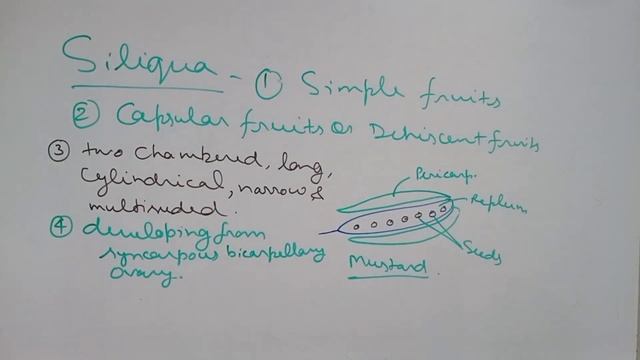 Siliqua - ① Simple fruits
② Capsular fruits or Dehiscent fruits
③ two chambered, long,
cylindrical, narrow &
multiseeded.
④ developing from
syncarpous bicarpellary
ovary.
Pericarp.
Replum
Seeds
Mustard.